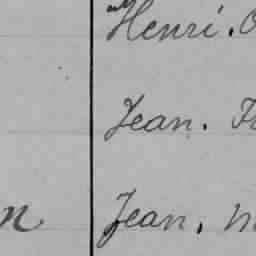 Henri.
Jean.
n Jean.